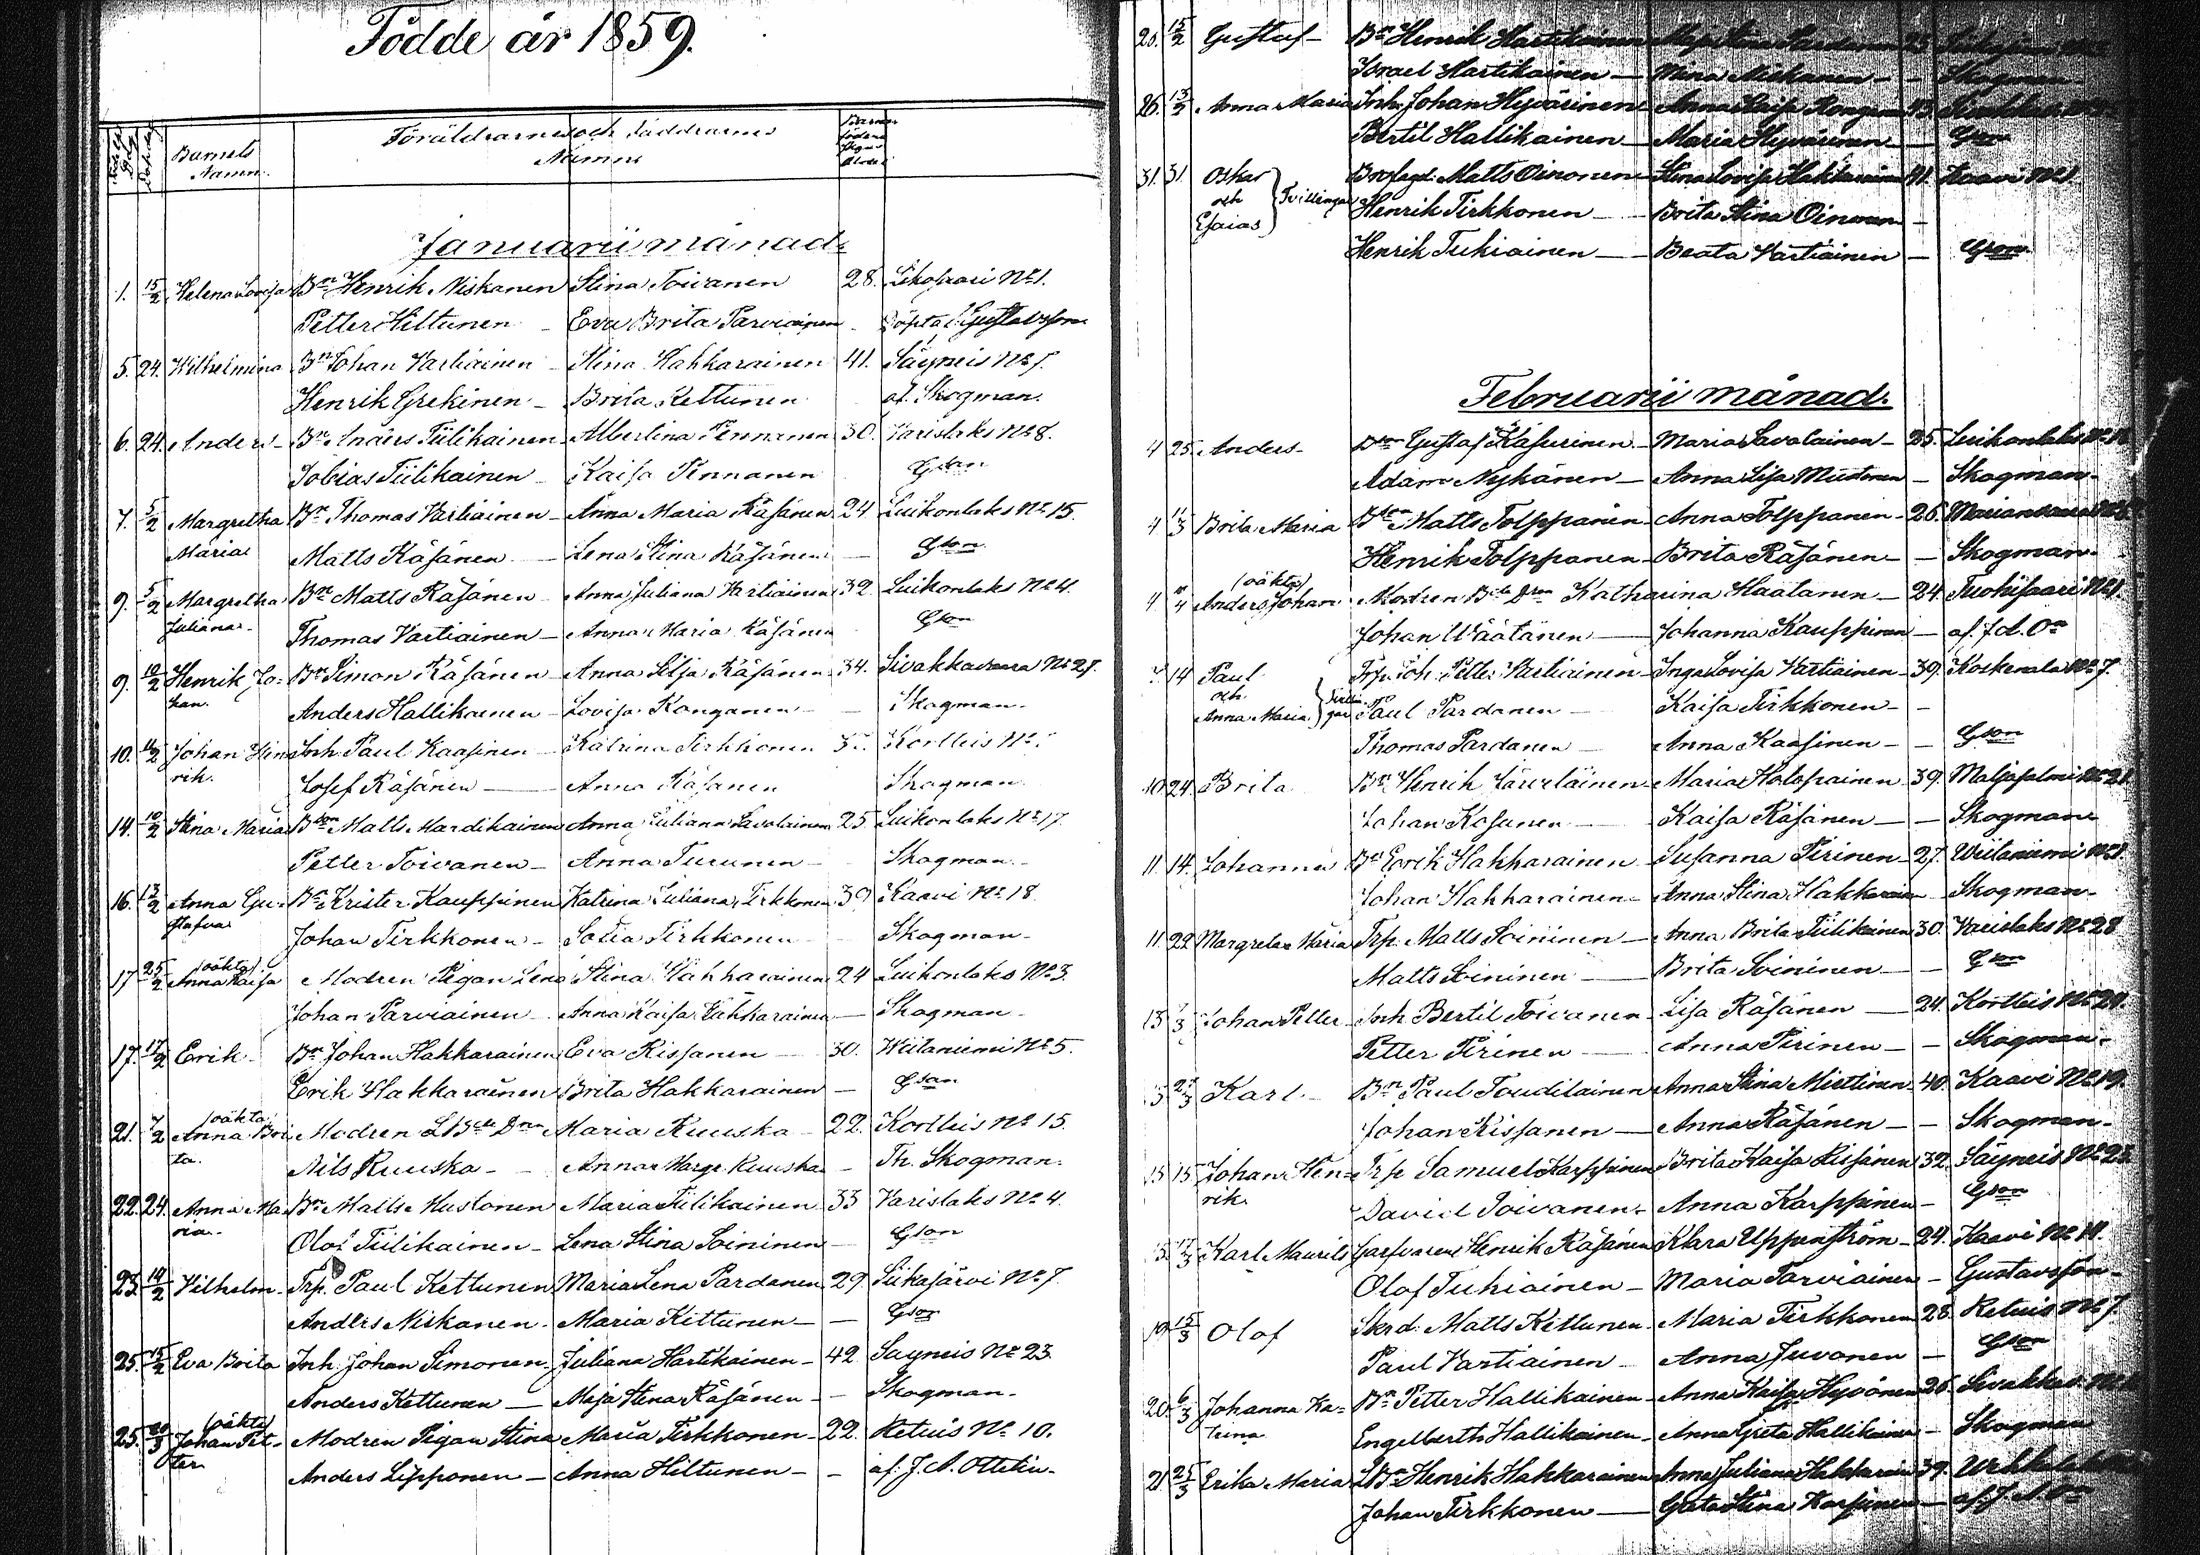 Födde år 1859.
Barnets Namn. Föräldrarnes och Faddrarnes Namn
Januarii månad
1. 15/2 Helena Lovisa Bn Henrik Niskanen Stina Toivanen 28. Nº 1.
Petter Hiltunen Eva Brita Parviainen - Döpt af Gustavsson
5. 24. Wilhelmina Bn Johan Vartiainen Stina Hakkarainen 41. Säyneis Nº 7.
Henrik Grekinen - Brita Kettunen af Skogman.
6. 24. Anders - Bn Anders Tiilikainen Albertina Pennanen 30. Varislaks Nº 8.
Tobias Tiilikainen Kaisa Pennanen Gson
7. 5/2 Margretha Bn Thomas Vartiainen - Anna Maria Räsänen 24 Luikonlaks Nº 15.
Maria Matts Räsänen Lena Stina Räsänen — Gson
9. 5/2 Margretha Bn Matts Räsänen - Anna Juliana Vartiainen 32. Luikonlaks Nº 4.
Juliana - Thomas Vartiainen - Anna Maria Räsänen Gson
9. 10/2 Henrik Jo= Bn Simon Räsänen - Anna Lisa Räsänen 34. Sivakkavaara Nº 27.
han. Anders Hallikainen - Lovisa Konganen - — Skogman.
10. 11/2 Johan Hen Inh. Paul Kaasinen - Katrina Tirkkonen Kortteis Nº
rik. Josef Räsänen — Anna Räsänen Skogman
14. 10/2 Stina Maria Bson Matts Mardikainen Anna Juliana Savolainen 25 Luikonlaks Nº 17.
Petter Toivanen - Anna Turunen - Skogman.
16. 13/2 Anna Gu- Bn Krister Kauppinen Katrina Juliana Tirkkonen 39 Kaavi Nº 18.
stafva Johan Tirkkonen - Sofia Tirkkonen Skogman -
17 25/2 (oäkta) Anna Kaisa Modren Pigan Lena Stina Hakkarainen 24 Luikonlaks Nº 3.
Johan Parviainen - Anna Kaisa Hakkarainen — Skogman -
17. 17/2 Erik - Bn Johan Hakkarainen Eva Rissanen — 30. Witaniemi Nº 5.
Erik Hakkarainen Brita Hakkarainen — Gson
21. 7/2 (oäkta) Anna Bri Modren LBde Drn Maria Ruuska - 22. Kortteis Nº 15.
ta. Nils Ruuska - - Anna Margr. Ruuska - Th. Skogman.
22. 24. Anna Ma Bn Matts Mustonen Maria Tiilikainen 33 Varislaks Nº 4.
ria. - Olof Tiilikainen - Lena Stina Soininen — Gson
23. 14/2 Vilhelm - Trp. Paul Kettunen Maria Lena Pardanen 29. Siikajärvi Nº 7.
Anders Niskanen. Maria Kettunen — — Gson
25. 15/2 Eva Brita Inh. Johan Simonen. Juliana Hartikainen - 42. Säyneis Nº 23.
Anders Kettunen — Maja Stina Räsänen - — Skogman.
25. 20/3 (oäkta) Johan Pet- Modren Pigan Stina Maria Tirkkonen - 22. Retuis Nº 10.
ter. Anders Lipponen — Anna Hiltunen - - af J. A. Ottelin -
20. 15/2 Gustaf - Bn Henrik Hartikainen
Israel Hartikainen — Stina Niskanen - - Skogman
26. 13/2 Anna Maria Inh. Johan Hyvärinen Anna Kaisa 43.
Bertil Hallikainen Maria Hyvärinen - Gson
31. 31. Oskar och Esaias } Tvillingar Matts Oinonen Stina Lovisa Hakkarainen 41. Kaavi Nº
Henrik Tirkkonen — Brita Stina Oinonen -
Henrik Tukiainen — Beata Vartiainen - Gson
Februarii månad.
4 25. Anders - Gustaf Räsänen - Maria Savolainen - 35. Luikonlaks Nº
Adam Nykänen — Anna Lisa Mustonen - Skogman -
4 11/3 Brita Maria Bson Matts Tolppanen Anna Tolppanen - 26.
Henrik Tolppanen - Brita Räsänen - - Skogman -
4 (oäkta) Anders Johan Modren Bde Drn Katharina Haatanen - 24. Tuohisaari Nº
Johan Wäätänen — Johanna Kauppinen -
14 Paul och Anna Maria } Tvillin gar Trp. Joh. Petter Vartiainen - Inga Lovisa Vartiainen - 39. Koskenala Nº 7.
Paul Pardanen — Kaisa Tirkkonen - -
Thomas Pardanen — Anna Kaasinen - - Gson
10 24. Brita Bn Henrik Maria Holopainen 39. Maljasalmi Nº 21.
Johan Kosunen — Kaisa Räsänen — - Skogman
11. 14. Johanna Bn Erik Hakkarainen - Susanna Pirinen - 27. Witaniemi Nº
Johan Hakkarainen - Anna Stina Hakkarainen Skogman -
11. 22. Margreta Maria Trp. Matts Soininen — Anna Brita Tiilikainen 30. Varislaks Nº 28
Matts Soininen — Brita Soininen — - Gson
13 Johan Petter Inh Bertil Toivanen - Lisa Räsänen — 24. Kortteis Nº 29.
Petter Pirinen — Anna Pirinen — - Skogman -
Karl - Bn Paul Toudilainen Anna Stina Miettinen 40. Kaavi Nº 19.
Johan Rissanen — Anna Räsänen - - Skogman -
15 15. Johan Hen- Trp Samuel Karppinen Brita Kaisa Rissanen 32. Säyneis Nº 23
rik. David Toivanen - Anna Karppinen - Gson
Karl Maurits Garfvaren Henrik Räsänen Klara Uppenström - 24. Kaavi Nº
Olof Tukiainen - Maria Parviainen - Gustavsson -
19. 15/3 Olof Matts Kettunen. Maria Tirkkonen 28. Retuis Nº 7.
Paul Vartiainen - Anna Juvonen - Gson
20. 6/3 Johanna Ka- Bn Petter Hallikainen - Anna Kaisa Hyvönen 26.
trina Engelberth Hallikainen - Anna Greta Hallikainen - Skogman
21. 25/3 Erika Maria LBn Henrik Hakkarainen Anna Juliana Hakkarainen 39.
Johan Tirkkonen — Greta Stina Karppinen